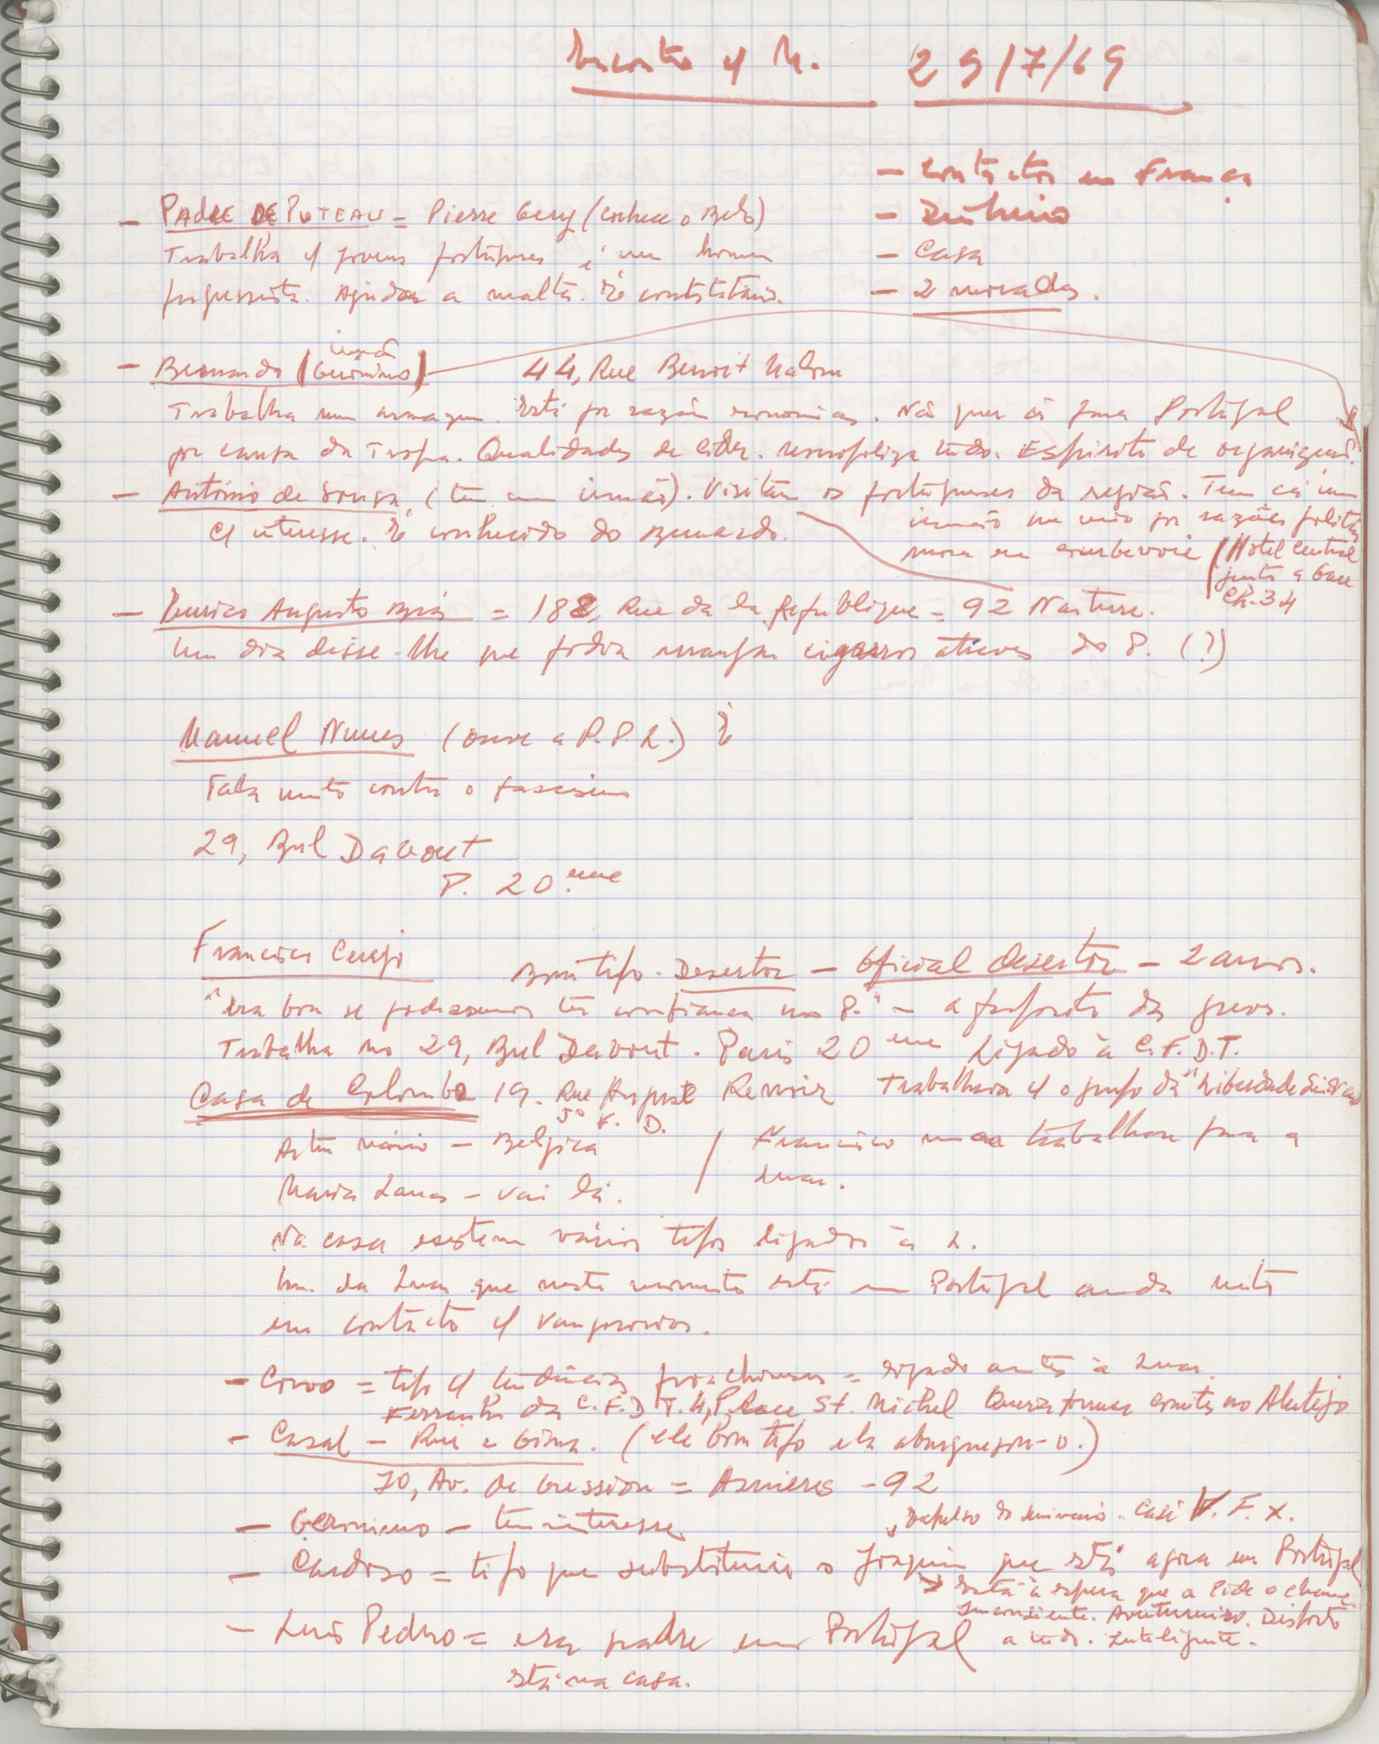 Encontro c/ M. 29/7/69
- Contactos em França
- Dinheiro
- Casa
- 2 moradas.
- PADRE DE PUTEAU = Pierre Gery (conhece o Belo)
Trabalha c/ jovens portugueses é um homem
progressista. Ajudou a malta. É contestatário.
- Bernardo (irmão Gerónimo) 44, Rue Benoit Malon
Trabalha num armazem. Está por razão economicas. Não quer ir para Portugal
por causa da Tropa. Qualidades de lider. tudo. Espirito de organização.
- António de Sousa, (tem um irmão). Visitam os portugueses da região. Tem cá um
irmão que veio por razões politicas
c/ interesse. É conhecido do Bernardo.
mora em Courbevoie (Hotel Central
junto a Gare
Ch. 34
- Augusto = 188, Rue da la Republique = 92 Nanterre.
Um dia disse-lhe que podia arranjar cigarros através do P. (?)
Manuel Nunes (ouve a R.P.L.) É
Fala muito contra o fascismo
29, Bul Davout
P. 20.eme
Francisco Cerejo Bom tipo. Desertor - Oficial desertor - 2 anos.
"era bom se podessemos ter confiança no P." - a proposito das greves.
Trabalha no 29, Bul Davout. Paris 20 eme Ligado à C.F.D.T.
Casa de Colombe 19. Rue August Renoir Trabalhava c/ o grupo da "Liberdade Sindical
5º F. D.
Artur - Belgica / Francisco trabalhou para a
Luar.
Maria Lamas - vai lá.
Na casa existem vários tipos ligados à L.
Um da Luar que neste momento está em Portugal anda muito
em contacto c/
- Corvo = tipo c/ tendências prochinesas = ligado antes à Luar.
da C.F.D.T. 4, Place St. Michel Queria formar no Alentejo
- Casal - Rui e Gina. (ele bom tipo ela aburguesou-o.)
70, Av. de = Asnieres - 92
- Geronimo - tem interesse
Expulso do seminario. Casa V. F. X.
- Cardoso = tipo que substituiu o Joaquim que está agora em Portugal
Está à espera que a Pide o chame.
Inconsciente. Aventureiro. Disposto
- Luis Pedro = era padre em Portugal a tudo. Inteligente.
está na casa.